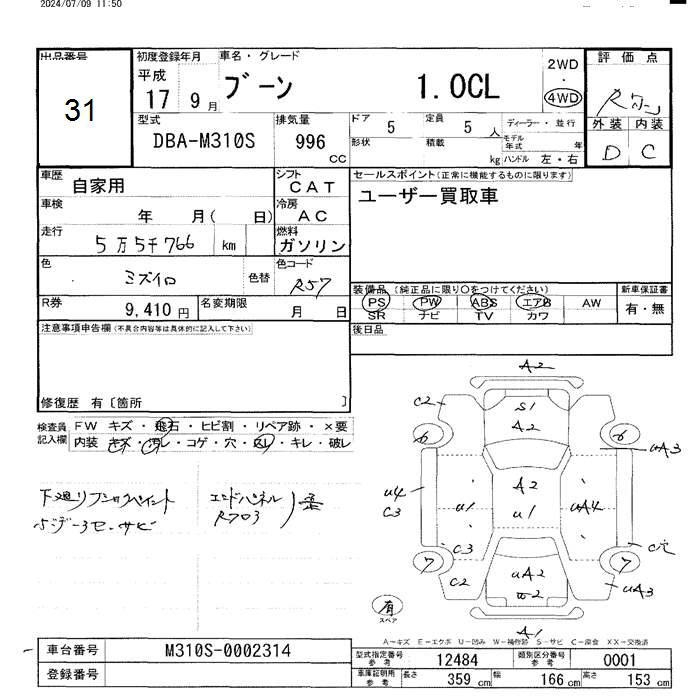 2024/07/09 11:50
出品番号 31
初度登録年月 平成 17 9月
車名・グレード ブーン 1.0CL
2WD ・ 4WD
評価点 R
外装 内装
D C
型式 DBA-M310S
排気量 996 cc
ドア 5 定員 5 人
形状 積載 kg
ディーラー・並行
モデル年式 年
ハンドル 左・右
車歴 自家用
シフト CAT
セールスポイント(正常に機能するものに限ります)
ユーザー買取車
車検 年 月( 日)
冷房 AC
走行 5万5千766 km
燃料 ガソリン
色 ミズイロ 色替
色コード R57
装備品 (純正品に限り○をつけてください) 新車保証書
PS PW ABS エアB AW 有・無
SR ナビ TV カワ
R券 9,410円 名変期限 月 日
注意事項申告欄(不具合内容等は具体的に記入して下さい)
後日品
修復歴 有〔箇所 〕
検査員記入欄 FW キズ・飛石・ヒビ割・リペア跡・×要
内装・キズ・汚レ・コゲ・穴・スレ・キレ・破レ
下廻り
サビ
エンドパネル
A2
C2 S1
A2
6 6
uA3
A2
u4 u1 u1 uA4
C3
C3
7 7
C2 uA2 uA3
W2
A1
有
スペア
A-キズ E-エクボ U-凹み W-補修跡 S-サビ C-腐食 XX-交換済
車台番号 M310S-0002314
登録番号
型式指定番号 参考 12484 類別区分番号 参考 0001
車庫証明用 参考 長さ 359 cm 幅 166 cm 高さ 153 cm